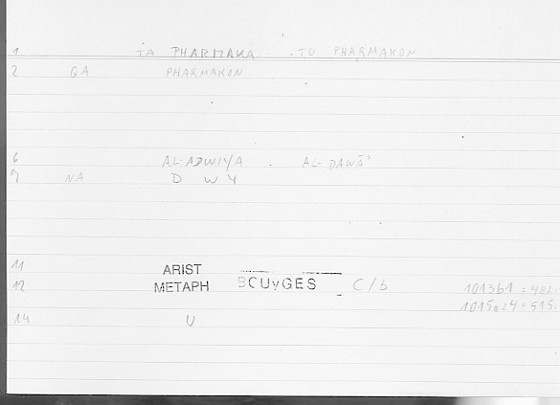 1 TA PHARMAKA . TO PHARMAKON
2 GA PHARMAKON
6 AL-ADWIYA . AL-DAWĀ'
7 NA D W Y
11 ARIST
12 METAPH BOUYGES C/b 1013b1 = 482.
1015a24 = 515.
14 U